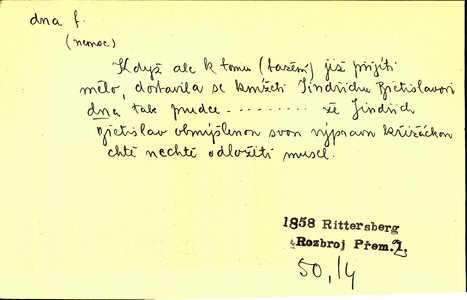 dna f.
(nemoc)
Když ale k tomu (tažení) již přijíti
mělo, dostavila se knížeti Jindřichu Břetislavovi
dna tak prudce .......... že Jindřich
Břetislav obmýšlenou svou výpravu křižáckou
chtě nechtě odložiti musel.
1858 Rittersberg
Rozbroj Přem.2.
50,/4